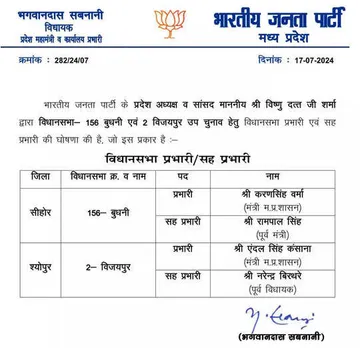 भगवानदास सबनानी
विधायक
प्रदेश महामंत्री व कार्यालय प्रभारी
भारतीय जनता पार्टी
मध्य प्रदेश
क्रमांक : 282/24/07
दिनांक : 17-07-2024
भारतीय जनता पार्टी के प्रदेश अध्यक्ष व सांसद माननीय श्री विष्णु दत्त जी शर्मा
द्वारा विधानसभा- 156 बुधनी एवं 2 विजयपुर उप चुनाव हेतु विधानसभा प्रभारी एवं सह
प्रभारी की घोषणा की है, जो इस प्रकार है :-
विधानसभा प्रभारी/सह प्रभारी
जिला विधानसभा क्र. व नाम पद नाम
सीहोर 156- बुधनी प्रभारी श्री करणसिंह वर्मा
(मंत्री म.प्र.शासन)
सह प्रभारी श्री रामपाल सिंह
(पूर्व मंत्री)
श्योपुर 2- विजयपुर प्रभारी श्री एंदल सिंह कंसाना
(मंत्री म.प्र.शासन)
सह प्रभारी श्री नरेन्द्र बिरथरे
(पूर्व विधायक)
(भगवानदास सबनानी)